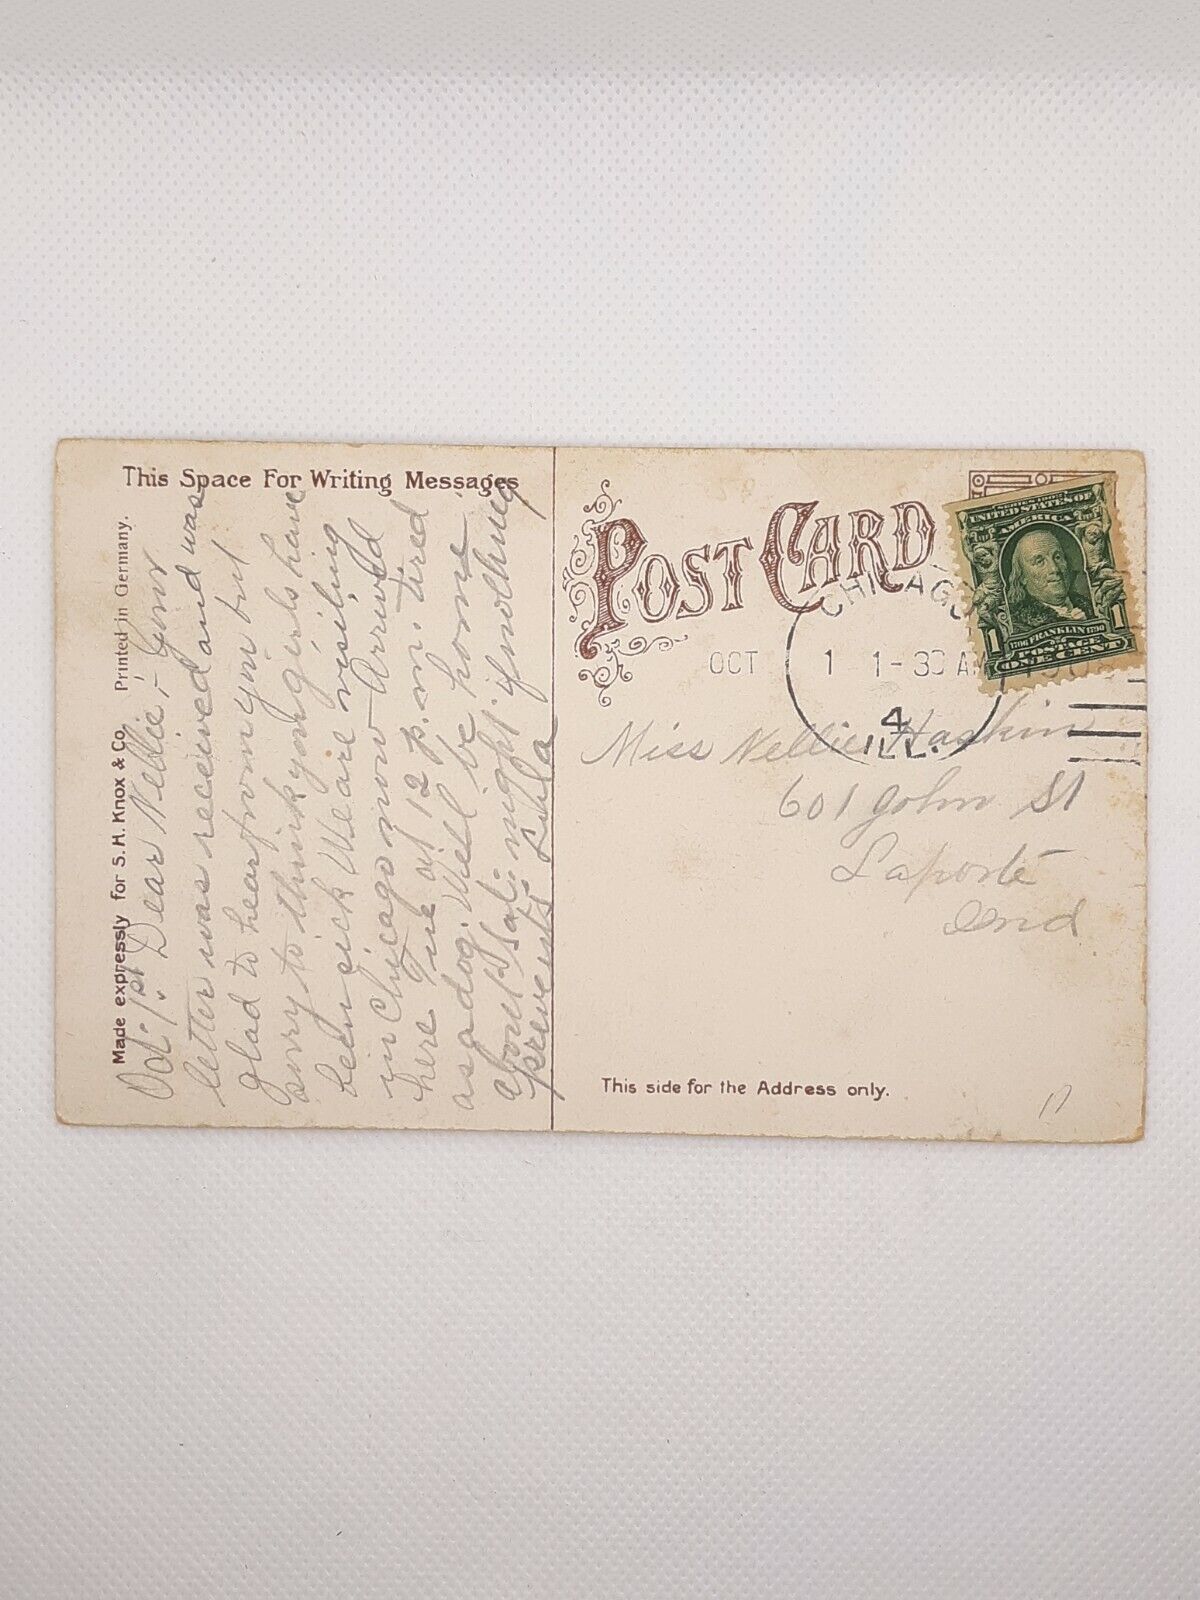 This Space For Writing Messages
Made expressly for S. H. Knox & Co. Printed in Germany.
Oct. 1st Dear Nellie:- Your
letter was received and was
glad to hear from you but
sorry to think you girls have
been sick We are visiting
in Chicago now Arrived
here at 12 p.m. tired
as a dog. Will be home
about Sat. night if nothing
prevents Lula
POST CARD
SERIES 1902
UNITED STATES OF
AMERICA
1706 FRANKLIN 1790
POSTAGE
1 1
ONE CENT
CHICAGO
OCT 1 1-30 A
4
ILL.
Miss Nellie Haskin
601 John St
Laporte
Ind
This side for the Address only.